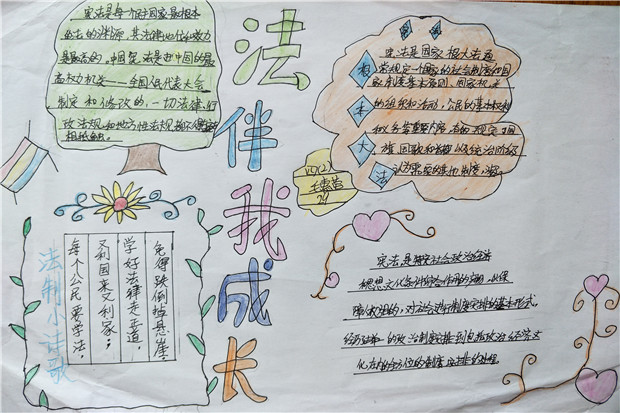 法伴我成长
宪法是每个民主国家最根本
的法的渊源,其法律地位和效力
是最高的。中国宪法是由中国的最
高权力机关——全国人民代表大会
制定和修改的,一切法律、行
政法规和地方性法规都不得
相抵触。
宪法是国家根大法通
常规定一个国家的社会制度和国
家制度基本原则、国家机关
的组织和活动,公民的基本权利
和义务等重要内容,有的规定,国
旗、国歌和
以及统治阶级
认为重要的其他制度,
根本大法
六(2)
法制小诗歌
每个公民要学法,
又利国来又利家;
学好法律走正道,
免得跌倒掉悬崖。
宪法是
社会政治经济
和思想文化条件综合作用的
对社会进行制度安排的基本形式。
的政治制度安排到包括政治经济文
化在内的全方位的制度安排的